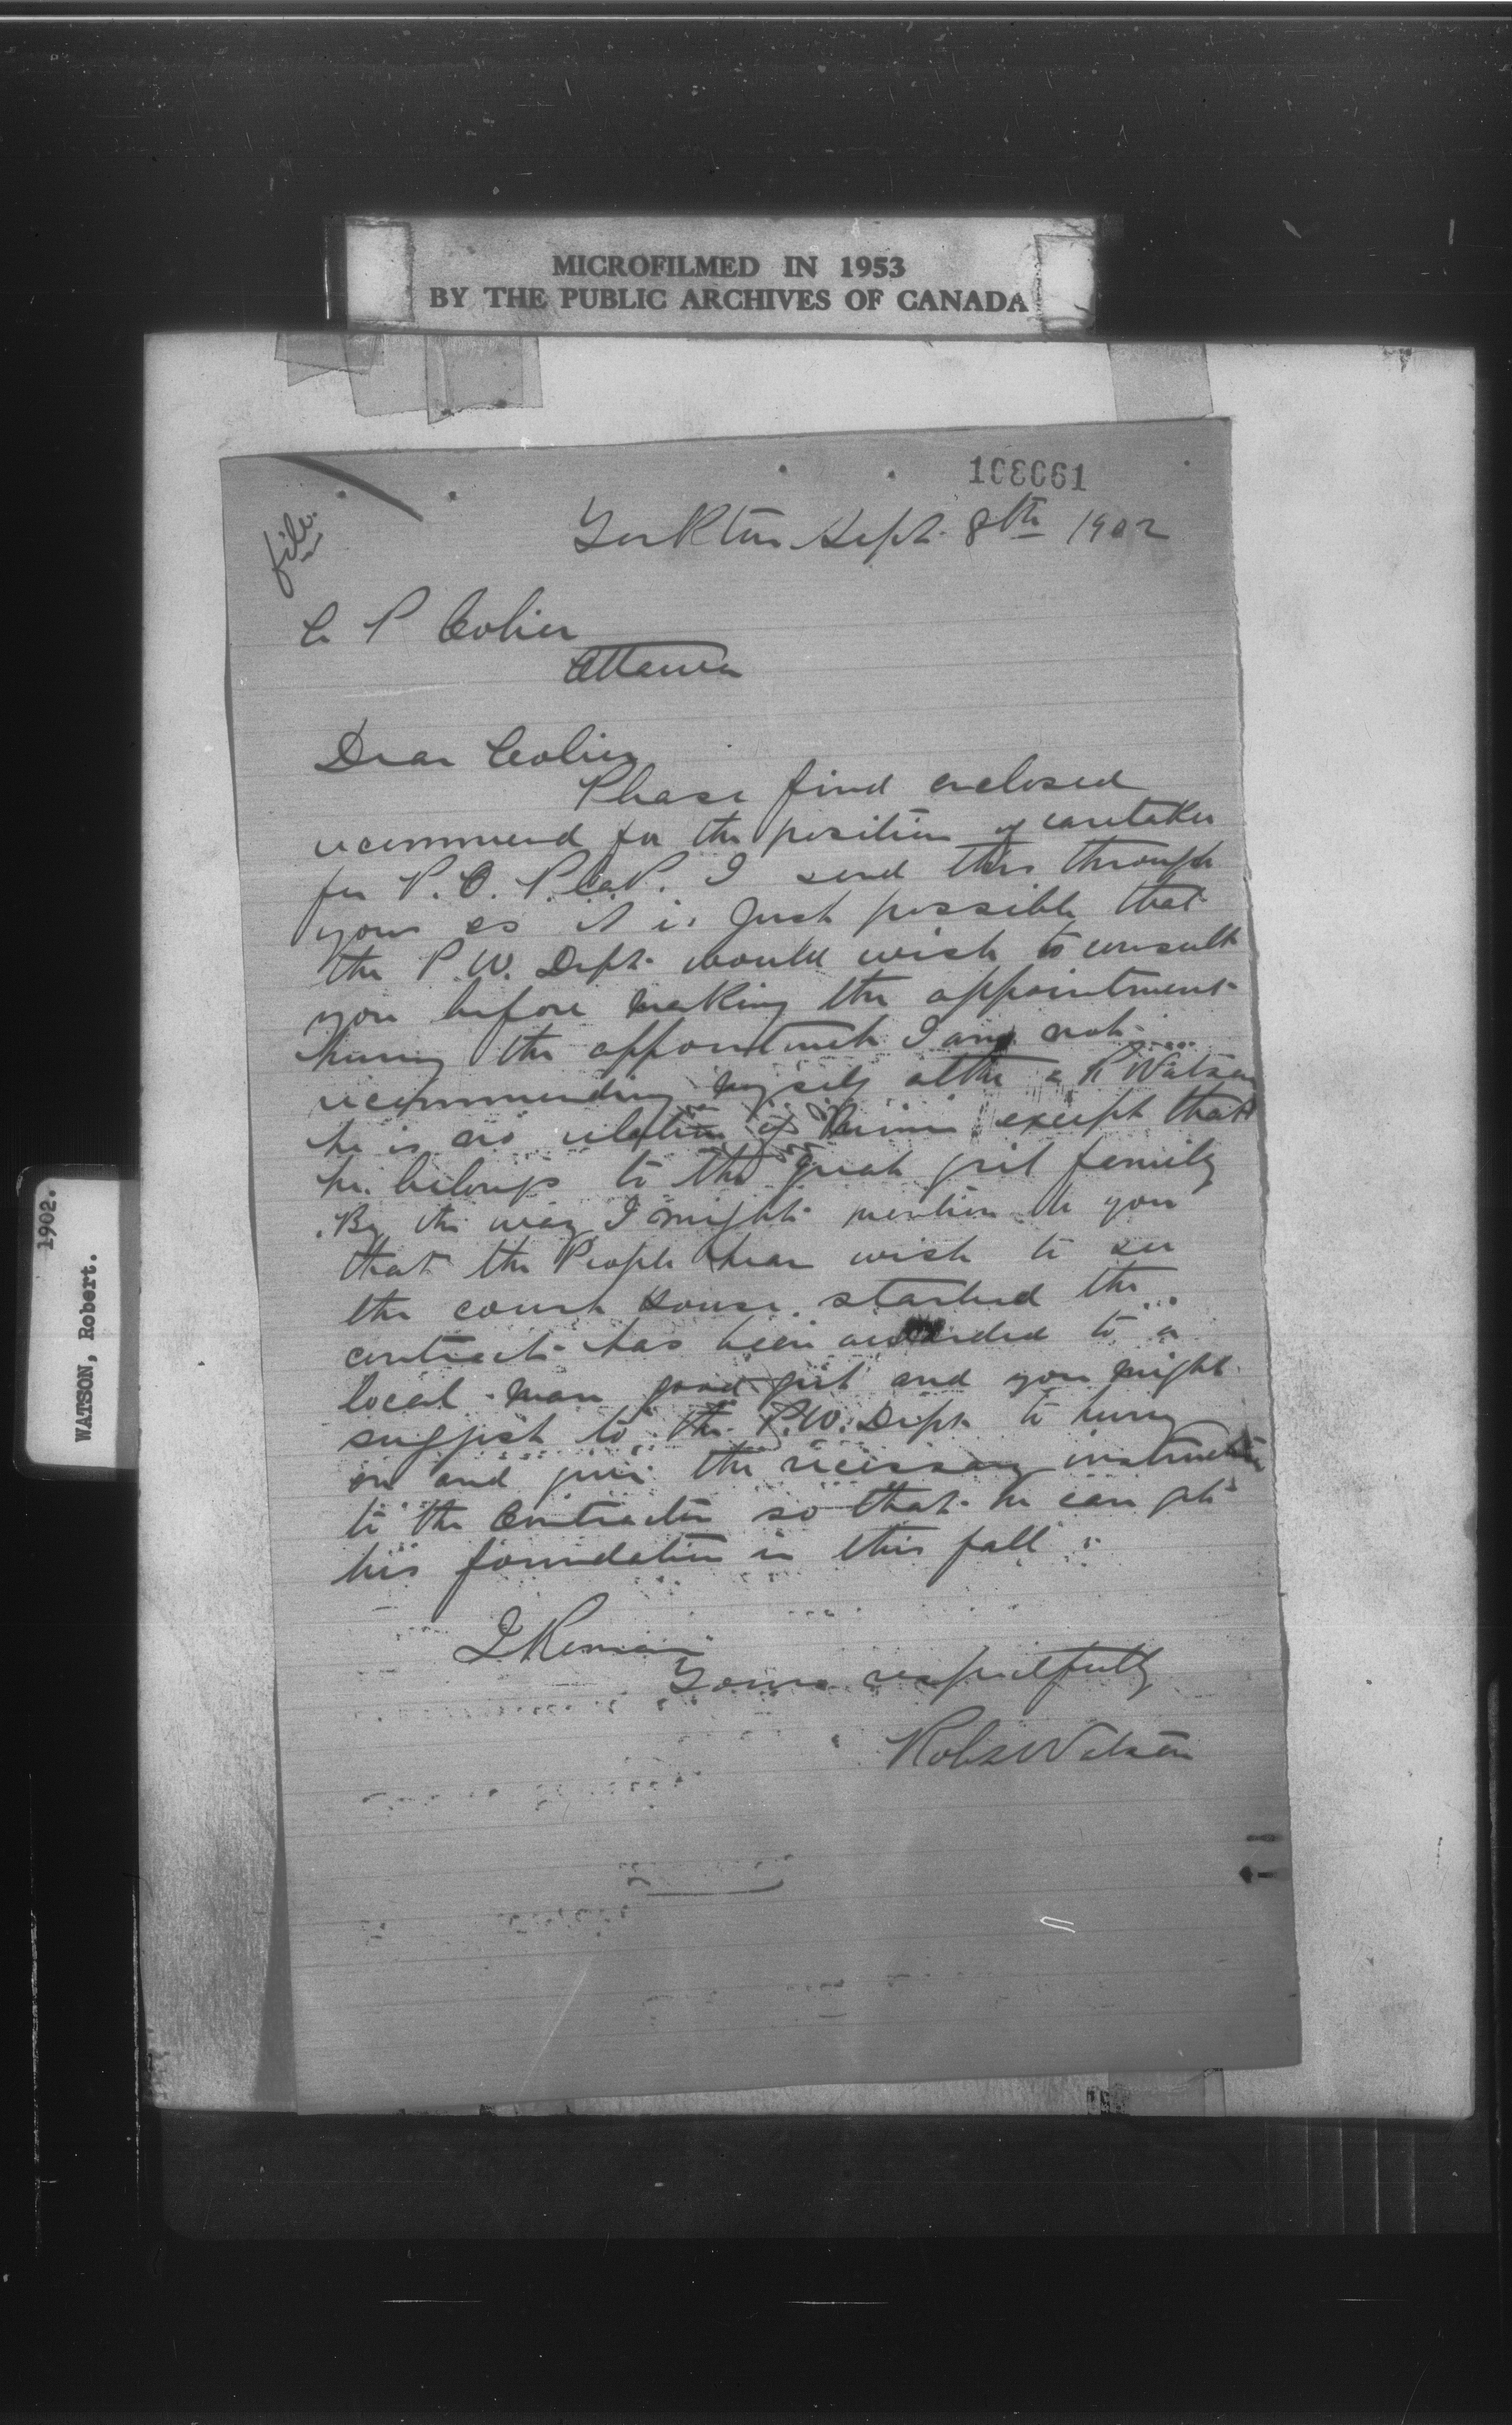 MICROFILMED IN 1953
BY THE PUBLIC ARCHIVES OF CANADA
108061
file.
Yorkton Sept. 8th 1902
C P Colier
Ottawa
Dear Colier
Please find enclosed
recommend for the position of caretaker
for P.O. I send this through
you as it is Just possible that
the P.W. Dept. would wish to consult
you before making the appointment
the appointment I am not
recommending myself altho a R Watson
he is no relation of mine except that
he belongs to the great grit family
By the way I might mention to you
that the People hear wish to see
the court House started the
contract has been awarded to a
local man good grit and you might
suggest to the P.W. Dept. to hurry
on and give the necessary instruction
to the Contractor so that he can get
his foundation in this fall
I Remain
Yours respectfully
Robt Watson
WATSON, Robert.
1902.